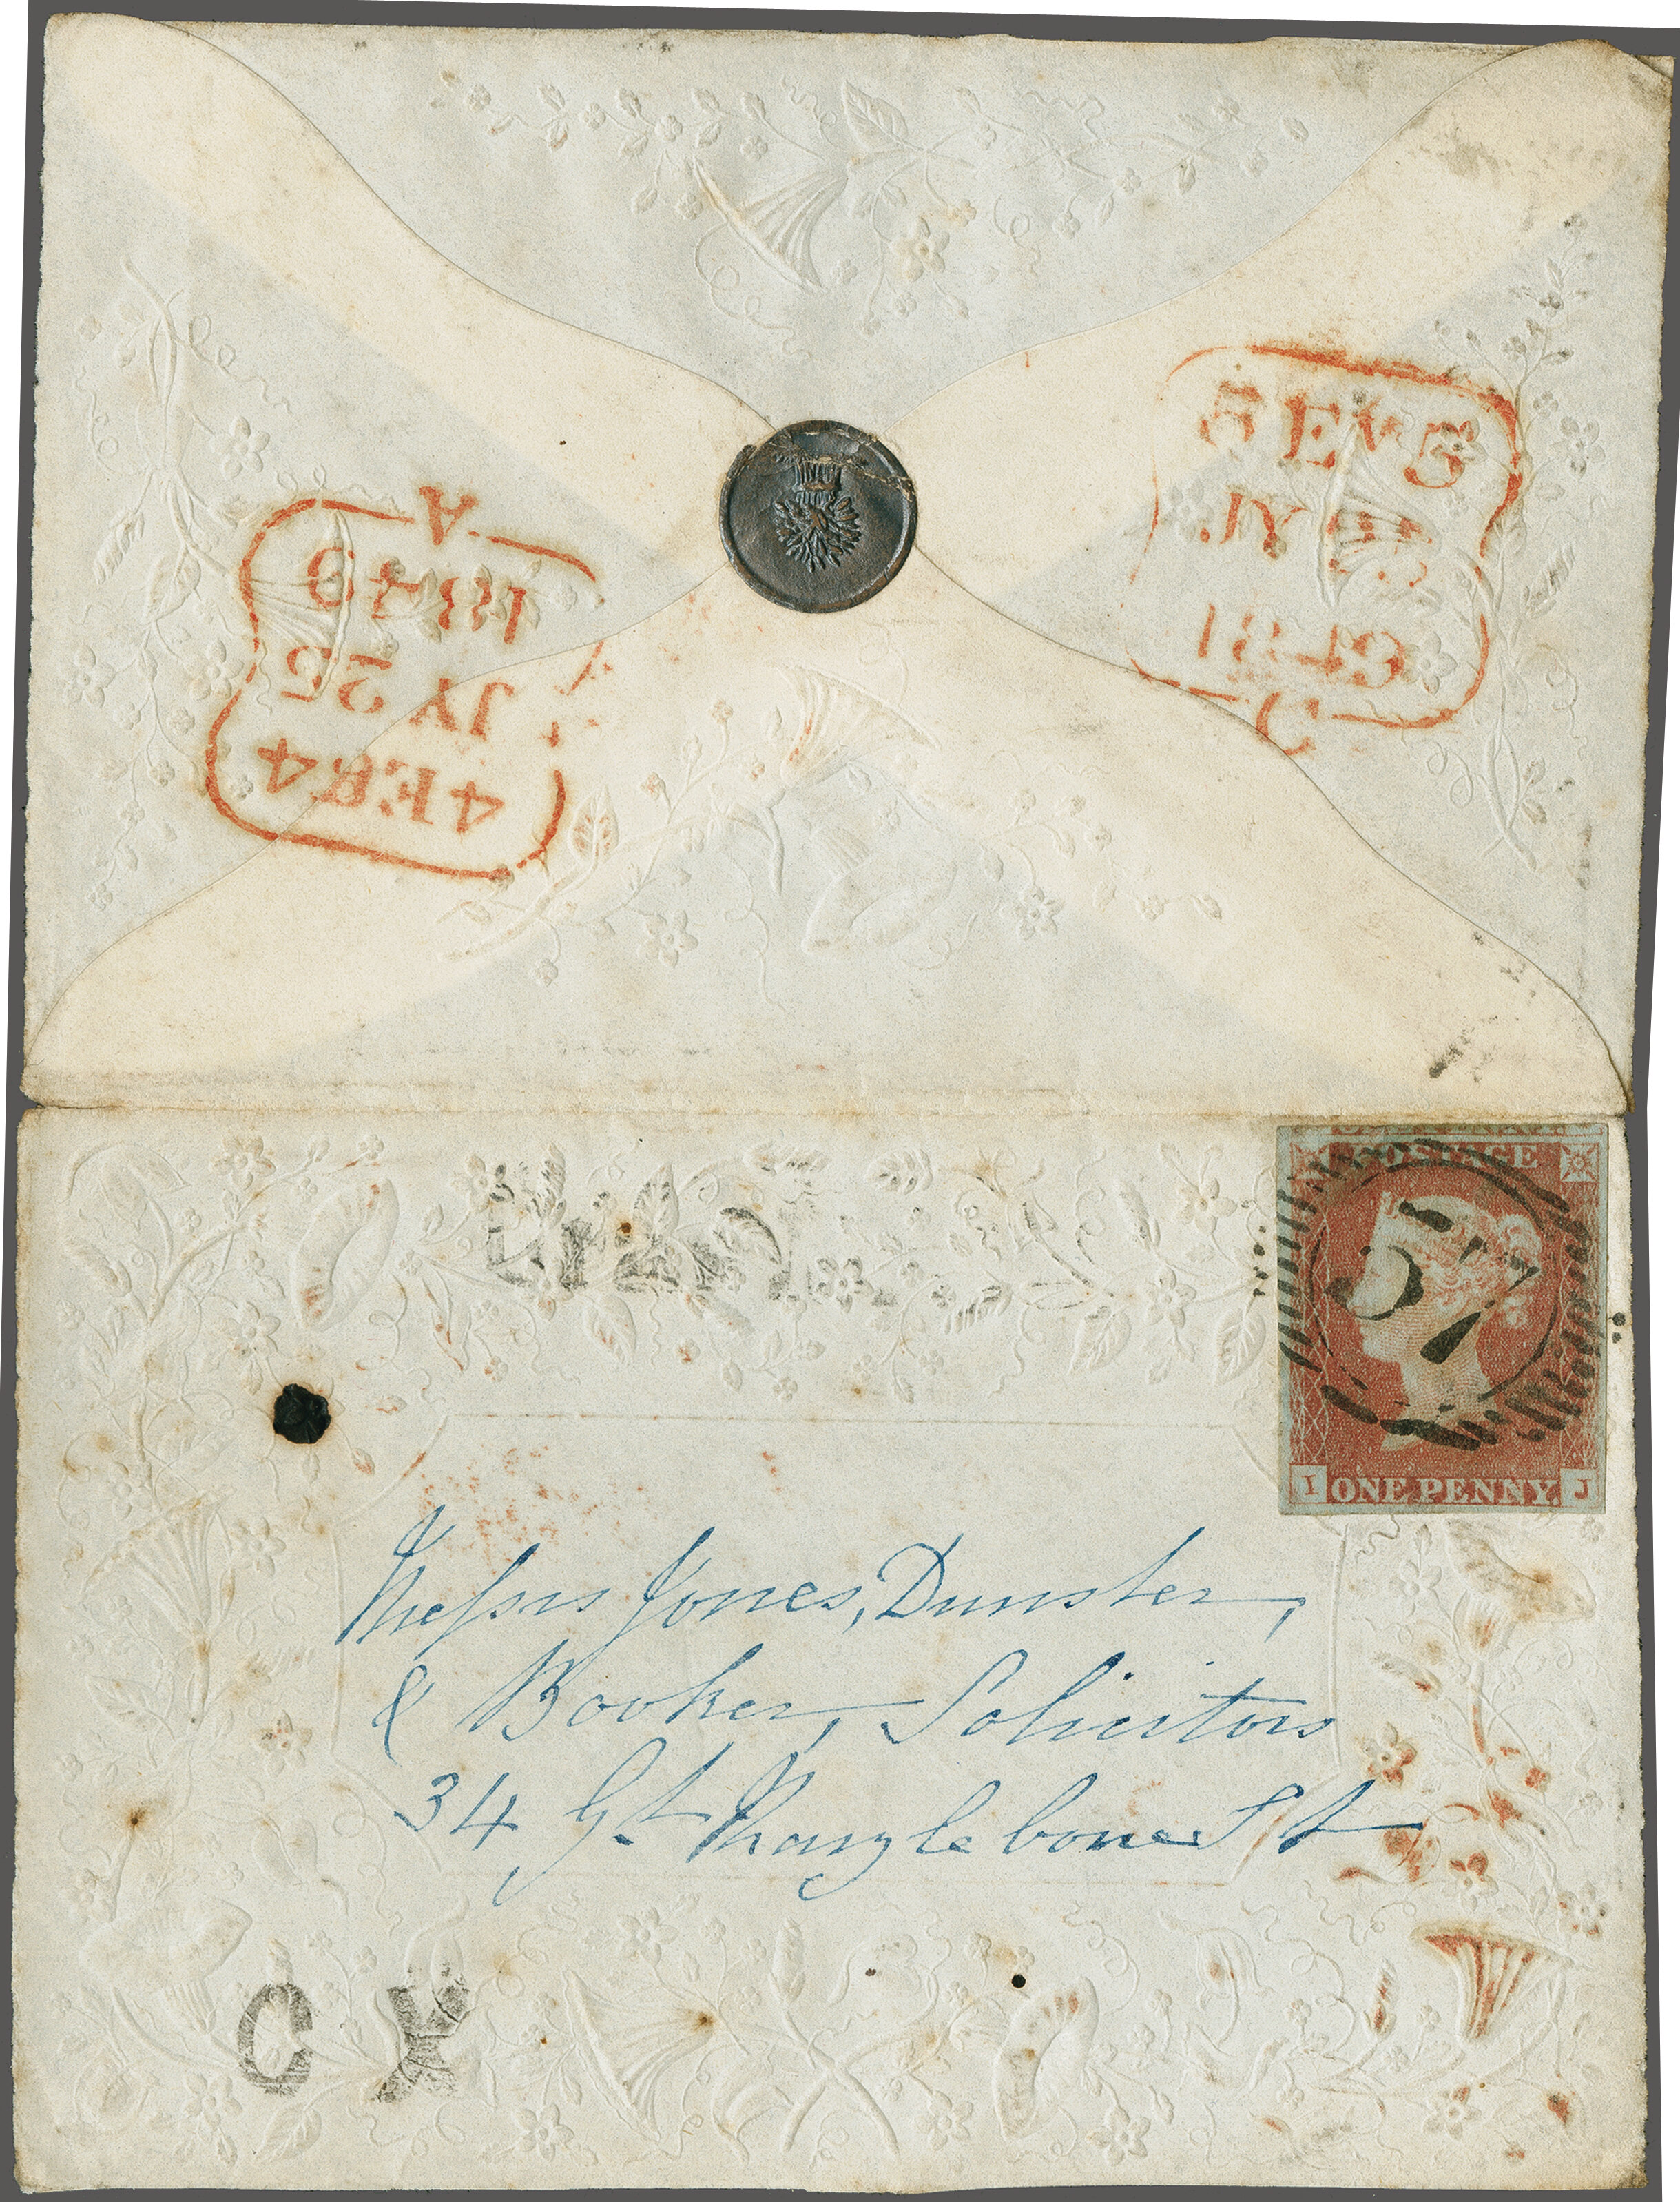 A
1849
JY 25
4 EG 4
5 EVG 5
JY
POSTAGE
57
I ONE PENNY. J
Messrs Jones, Dunster,
& Booker, Solicitors
34 Gt Marylebone St
C X